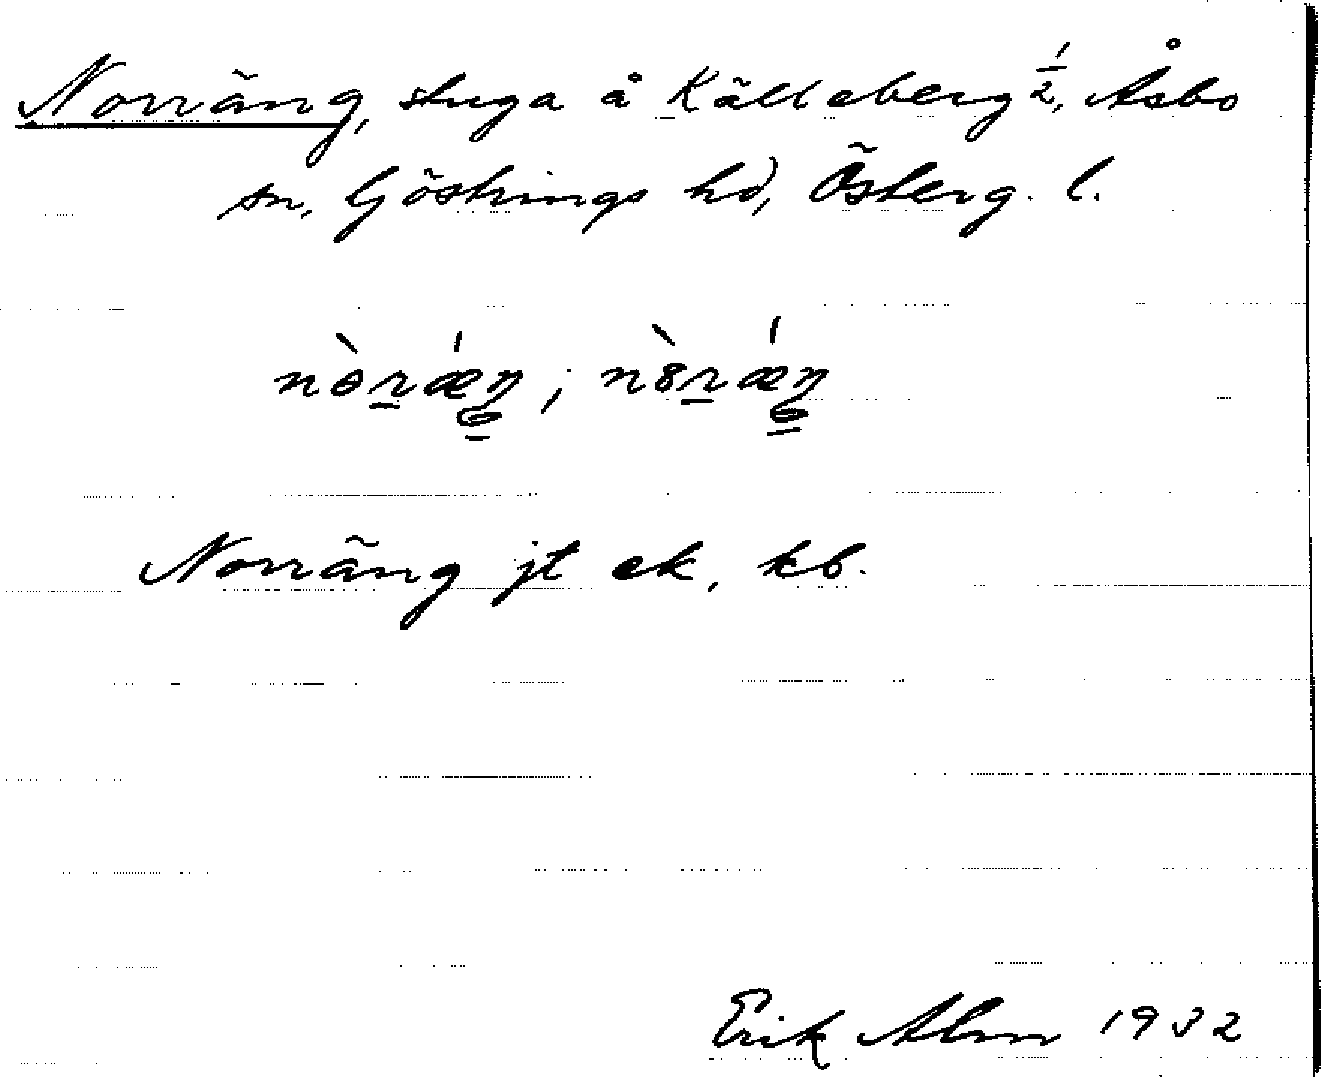 Norräng, stuga å Källeberg 1/2, Åsbo
sn, Göstrings hd, Österg. l.
nɵ̀ráŋ̲; nȣ̀rǽŋ̲
Norräng jt ek, kb.
Erik Alm 1932